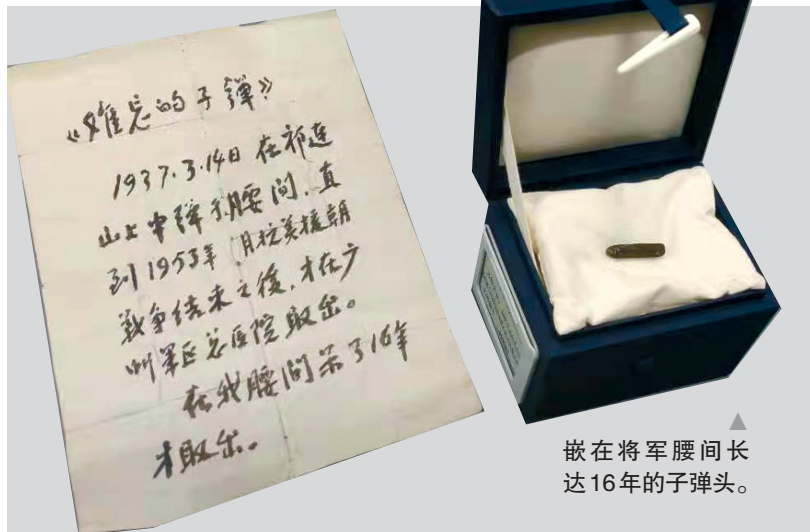 《难忘的子彈》
1937.3.14日 在祁连
山上中彈于腰间，直
到1953年 月抗美援朝
戰争结束之後，才在广
州军区总医院取出。
在我腰间呆了16年
才取出。
嵌在将军腰间长
达16年的子弹头。